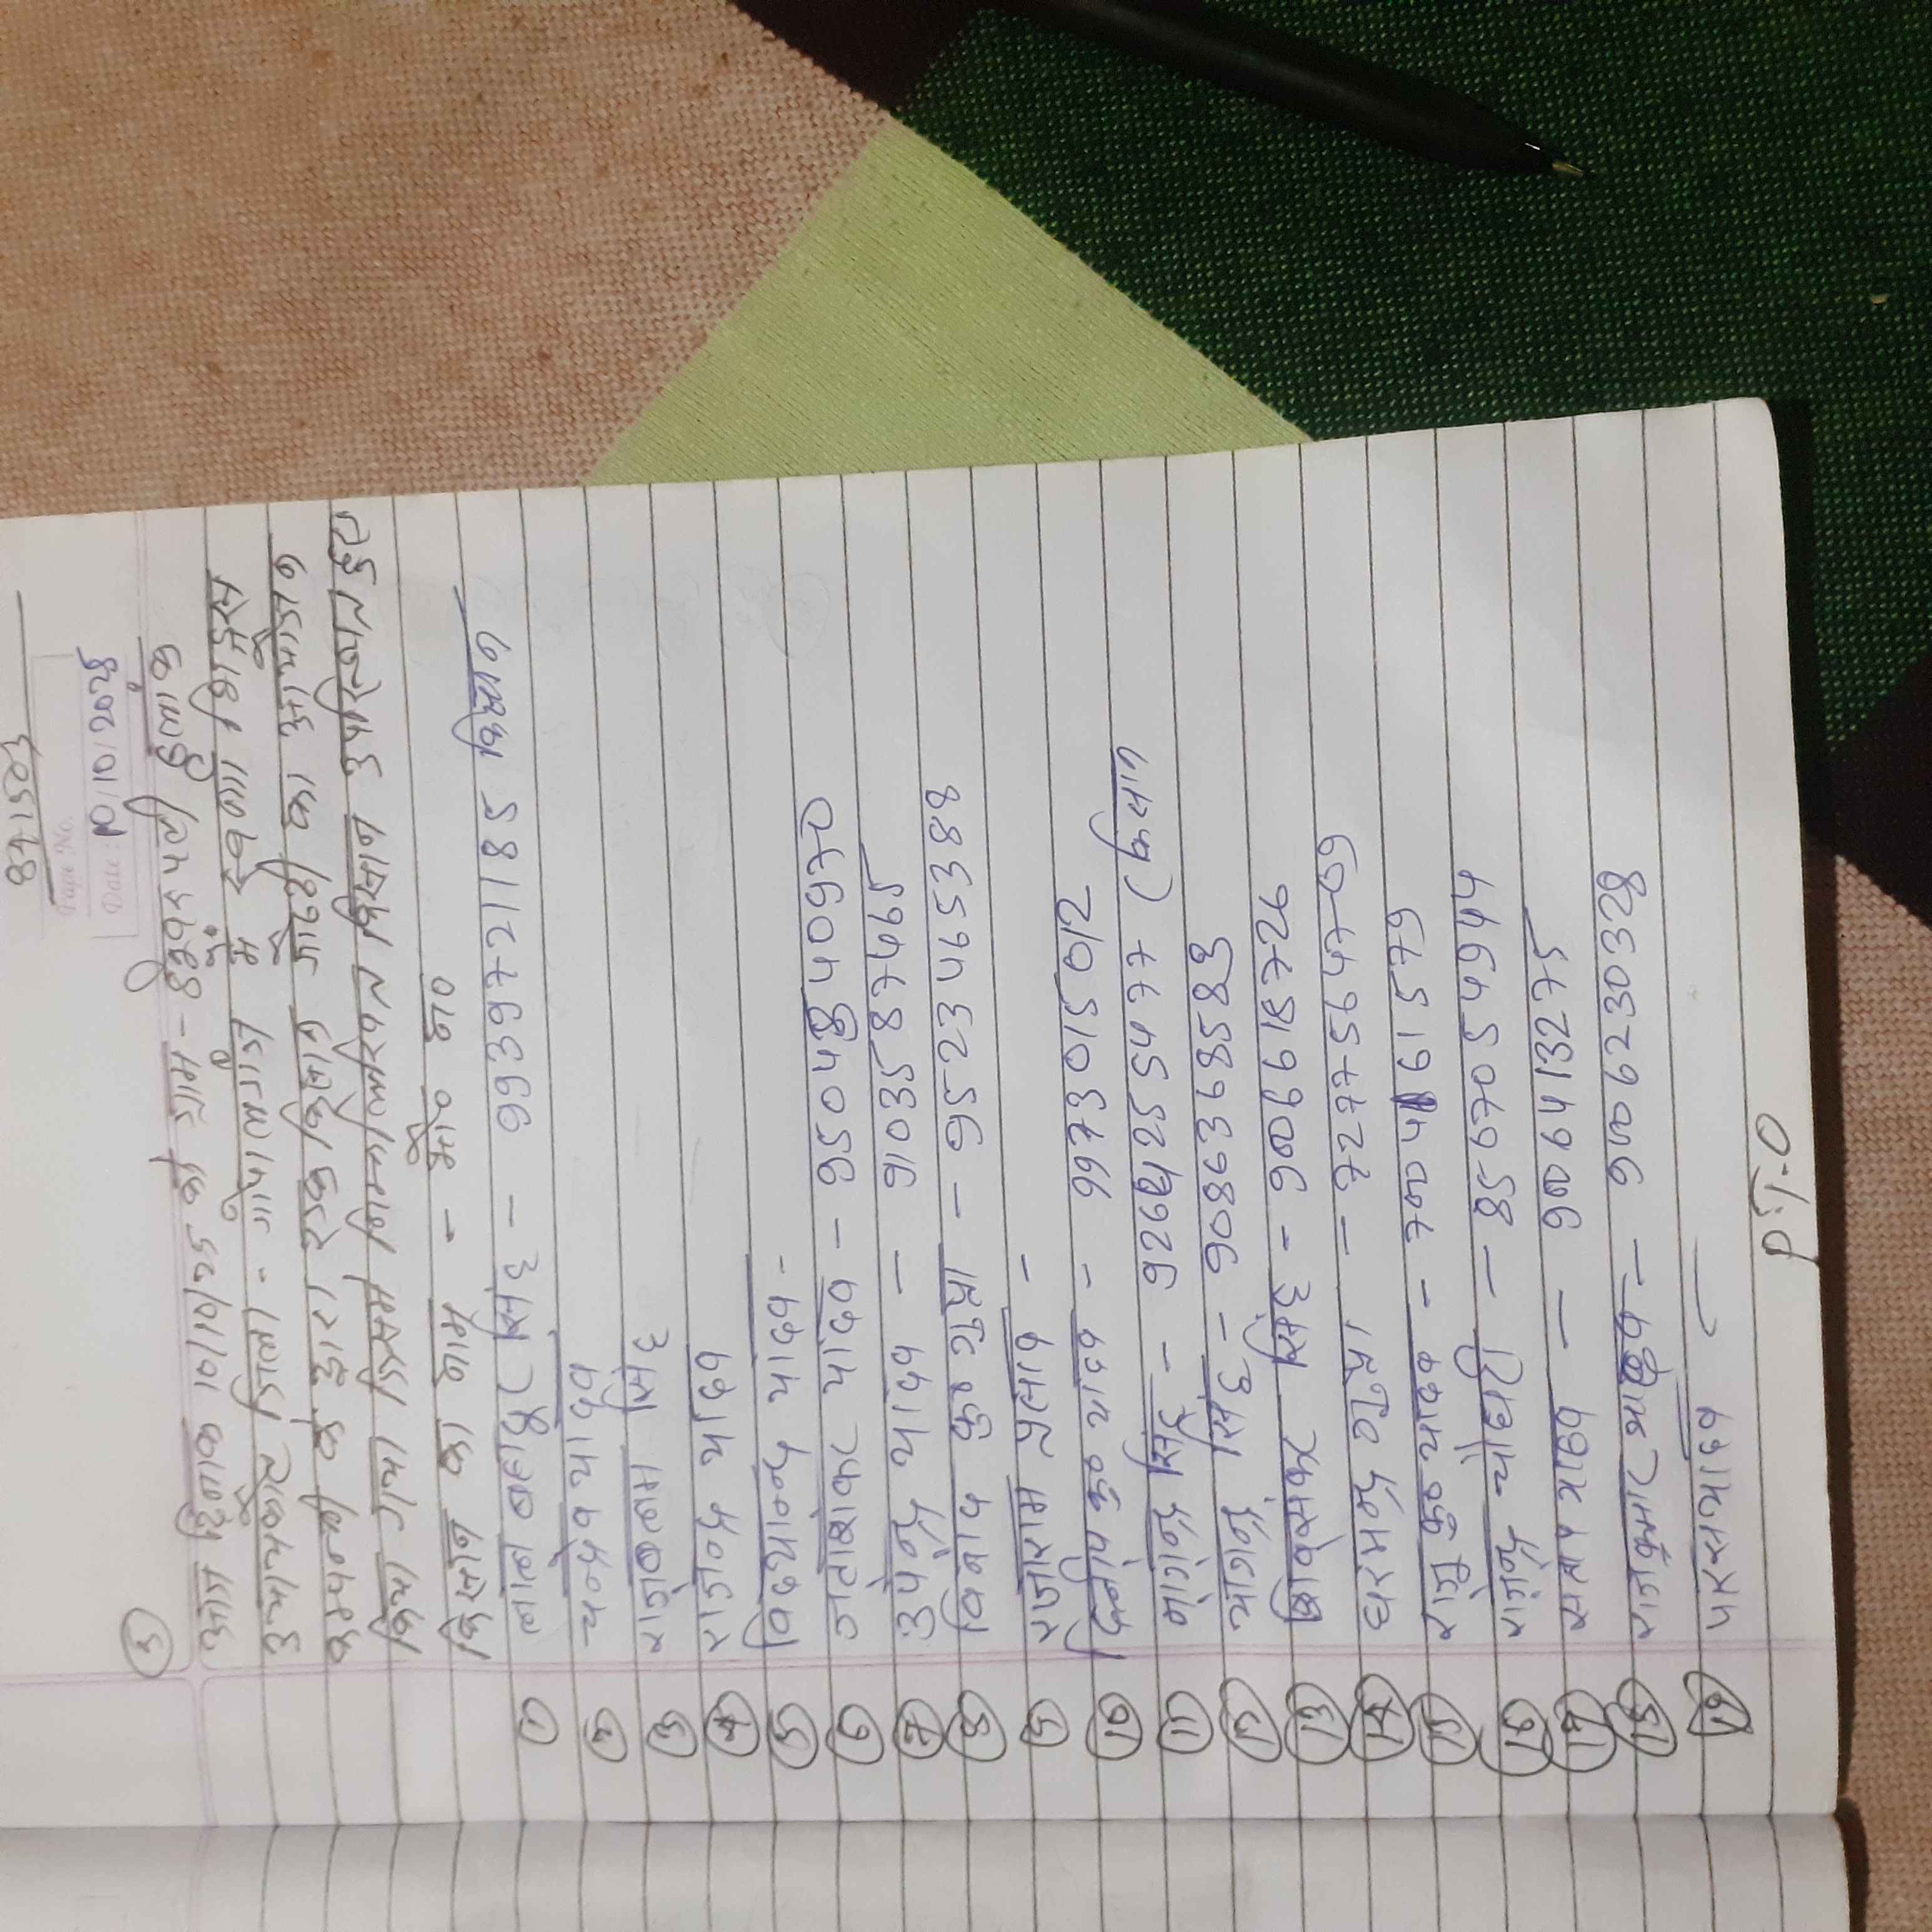 871503
Page No.
Date: 10/10/2025
③
आज दिनांक 10/10/25 को ग्राम - हेमबरदपट्टी ब्लाक
उचकागाँव जिला - गोपालगंज में सुवर्णा शिड्स
कम्पनी के द्वारा एक किसान गोष्ठी का आयोजन
किया गया जिसमें निम्नलिखित किसान उपस्थित हुए
किसान का नाम - मो० न०
① लाल बहादुर सिंह - 9939721185 किसान
② चन्देव यादव
③ राजबलम सिंह
④ राजेन्द्र यादव
⑤ विद्यानन्द यादव -
⑥ जटाशंकर यादव - 9504840970
⑦ उपेन्द्र यादव - 9103587465
⑧ विनोद कु० गुप्ता - 9523465388
⑨ राजाराम प्रसाद -
⑩ दिलीप कु० यादव - 9973015012
⑪ योगेन्द्र सिंह - 9262255477 (किसान
⑫ योगेन्द्र सिंह - 9086368583
⑬ शिवशंकर सिंह - 9006618726
⑭ धरमेन्द्र गुप्ता - 7277564709
⑮ राजू कु० यादव - 7004161579
⑯ राजेन्द्र चौधरी - 8567054944
⑰ यादव - 9006413275
⑱ राजकुमार यादव - 9006230328
⑲ पारस यादव
P.T.O